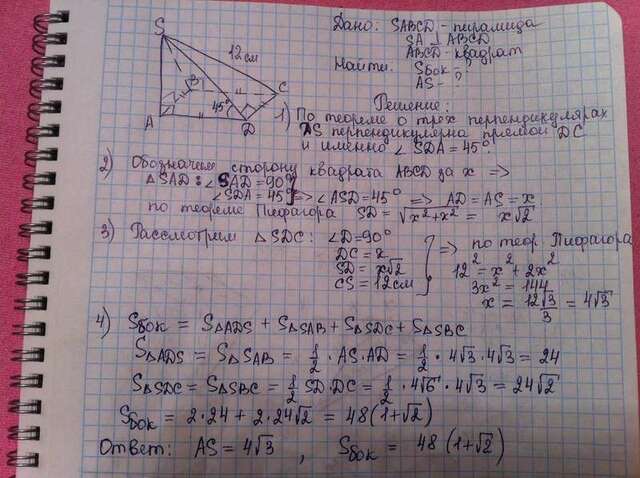 S
12 см
B
C
45°
A
D
Дано: SABCD - пирамида
SA ⊥ ABCD
ABCD - квадрат
Найти: Sбок - ?
AS - ?
Решение:
1) По теореме о трех перпендикулярах
DS перпендикулярна прямой DC
и именно ∠ SDA = 45°.
2) Обозначем сторону квадрата ABCD за x =>
△ SAD : ∠ SAD = 90°
∠ SDA = 45° } => ∠ ASD = 45° => AD = AS = x
по теореме Пифагора SD = √x² + x² = x√2
3) Рассмотрим △ SDC : ∠D = 90°
DC = x
SD = x√2
CS = 12 см
} => по теор. Пифагора
12² = x² + 2x²
3x² = 144
x = 12√3/3 = 4√3
4) Sбок = S△ADS + S△SAB + S△SDC + S△SBC
S△ADS = S△SAB = 1/2 · AS · AD = 1/2 · 4√3 · 4√3 = 24
S△SDC = S△SBC = 1/2 SD · DC = 1/2 · 4√6 · 4√3 = 24√2
Sбок = 2·24 + 2·24√2 = 48(1+√2)
Ответ: AS = 4√3 , Sбок = 48 (1+√2)